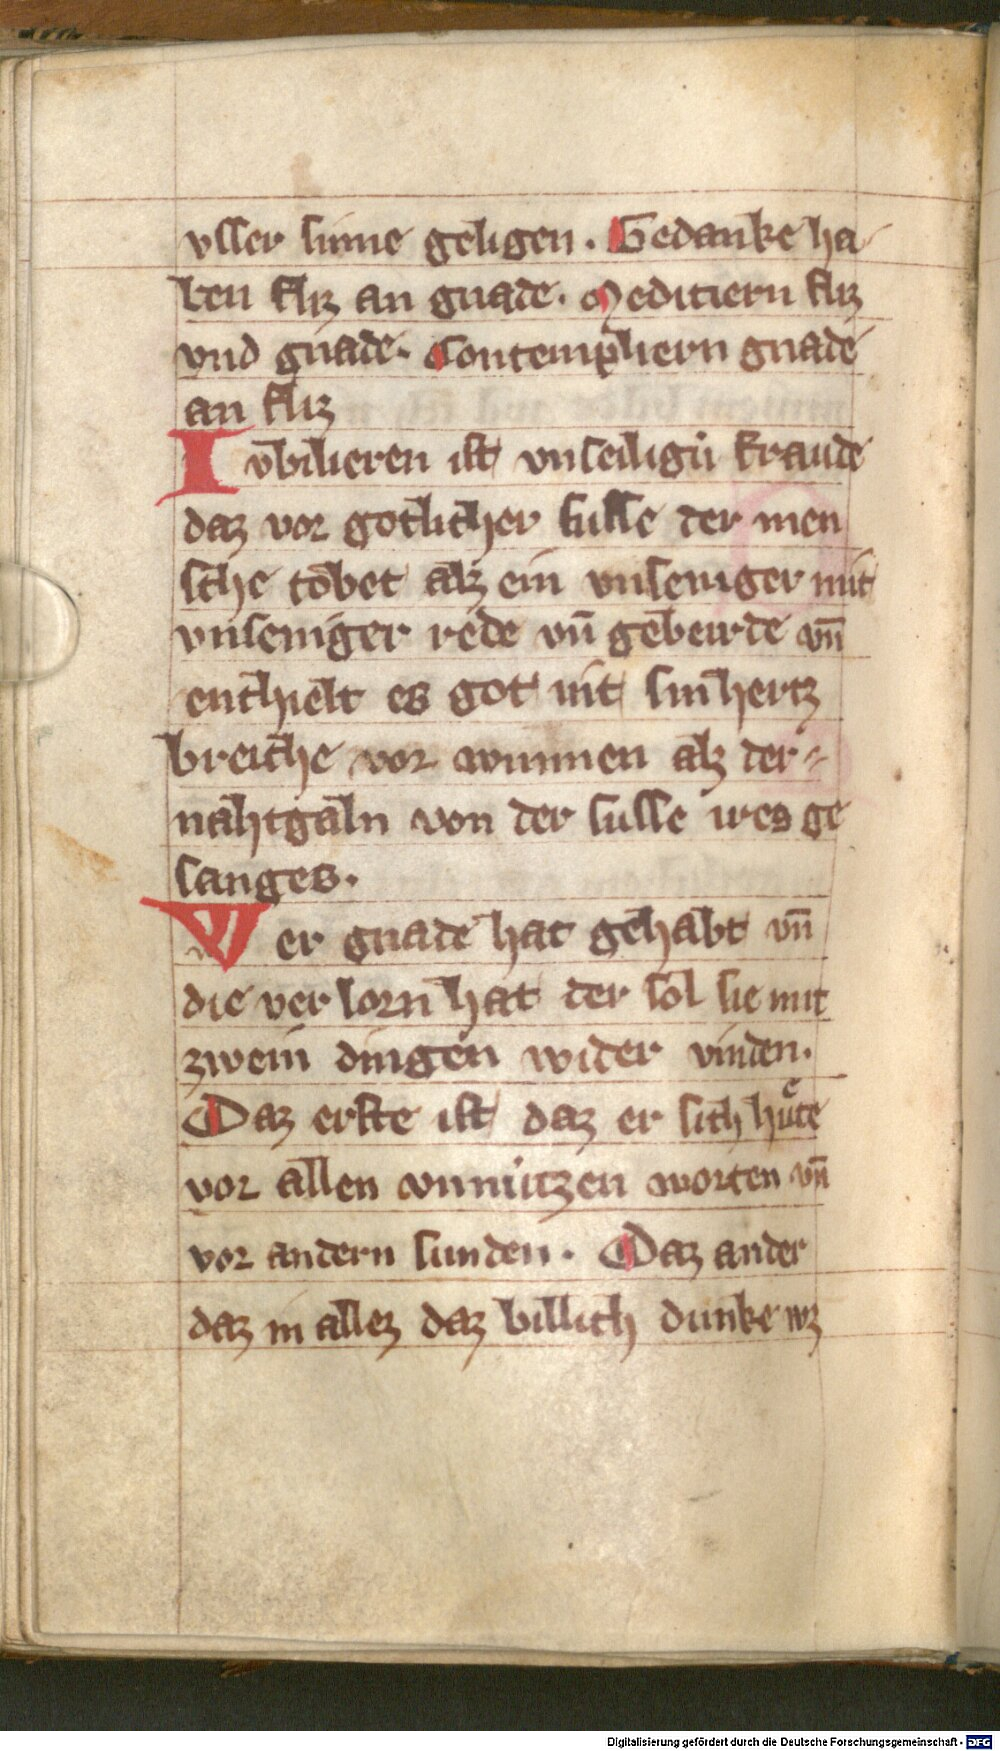 vsser sinne geligen. Gedanke ha-
ben fliz an gnade. Meditiern fliz
vnd gnade. Contempliern gnade
an fliz
Iubilieren ist vnseiligu fraude
daz vor gotlicher susse der men
sche tobet alz ein vnseniger mit
vnseniger rede vn̄ gebeirde vn̄
enthielt es got nit sin hertz
breiche vor wnnen alz der
nahtgaln von der susse ires ge
sanges.
Wer gnade hat gehabt vn̄
die ver lorn hat der sol sie mit
zwein dingen wider vinden.
Daz erste ist daz er sich huͤte
vor allen vnnutzen worten vn̄
vor andern sunden. Daz ander
daz in allez daz billich dunke wz
Digitalisierung gefördert durch die Deutsche Forschungsgemeinschaft - DFG